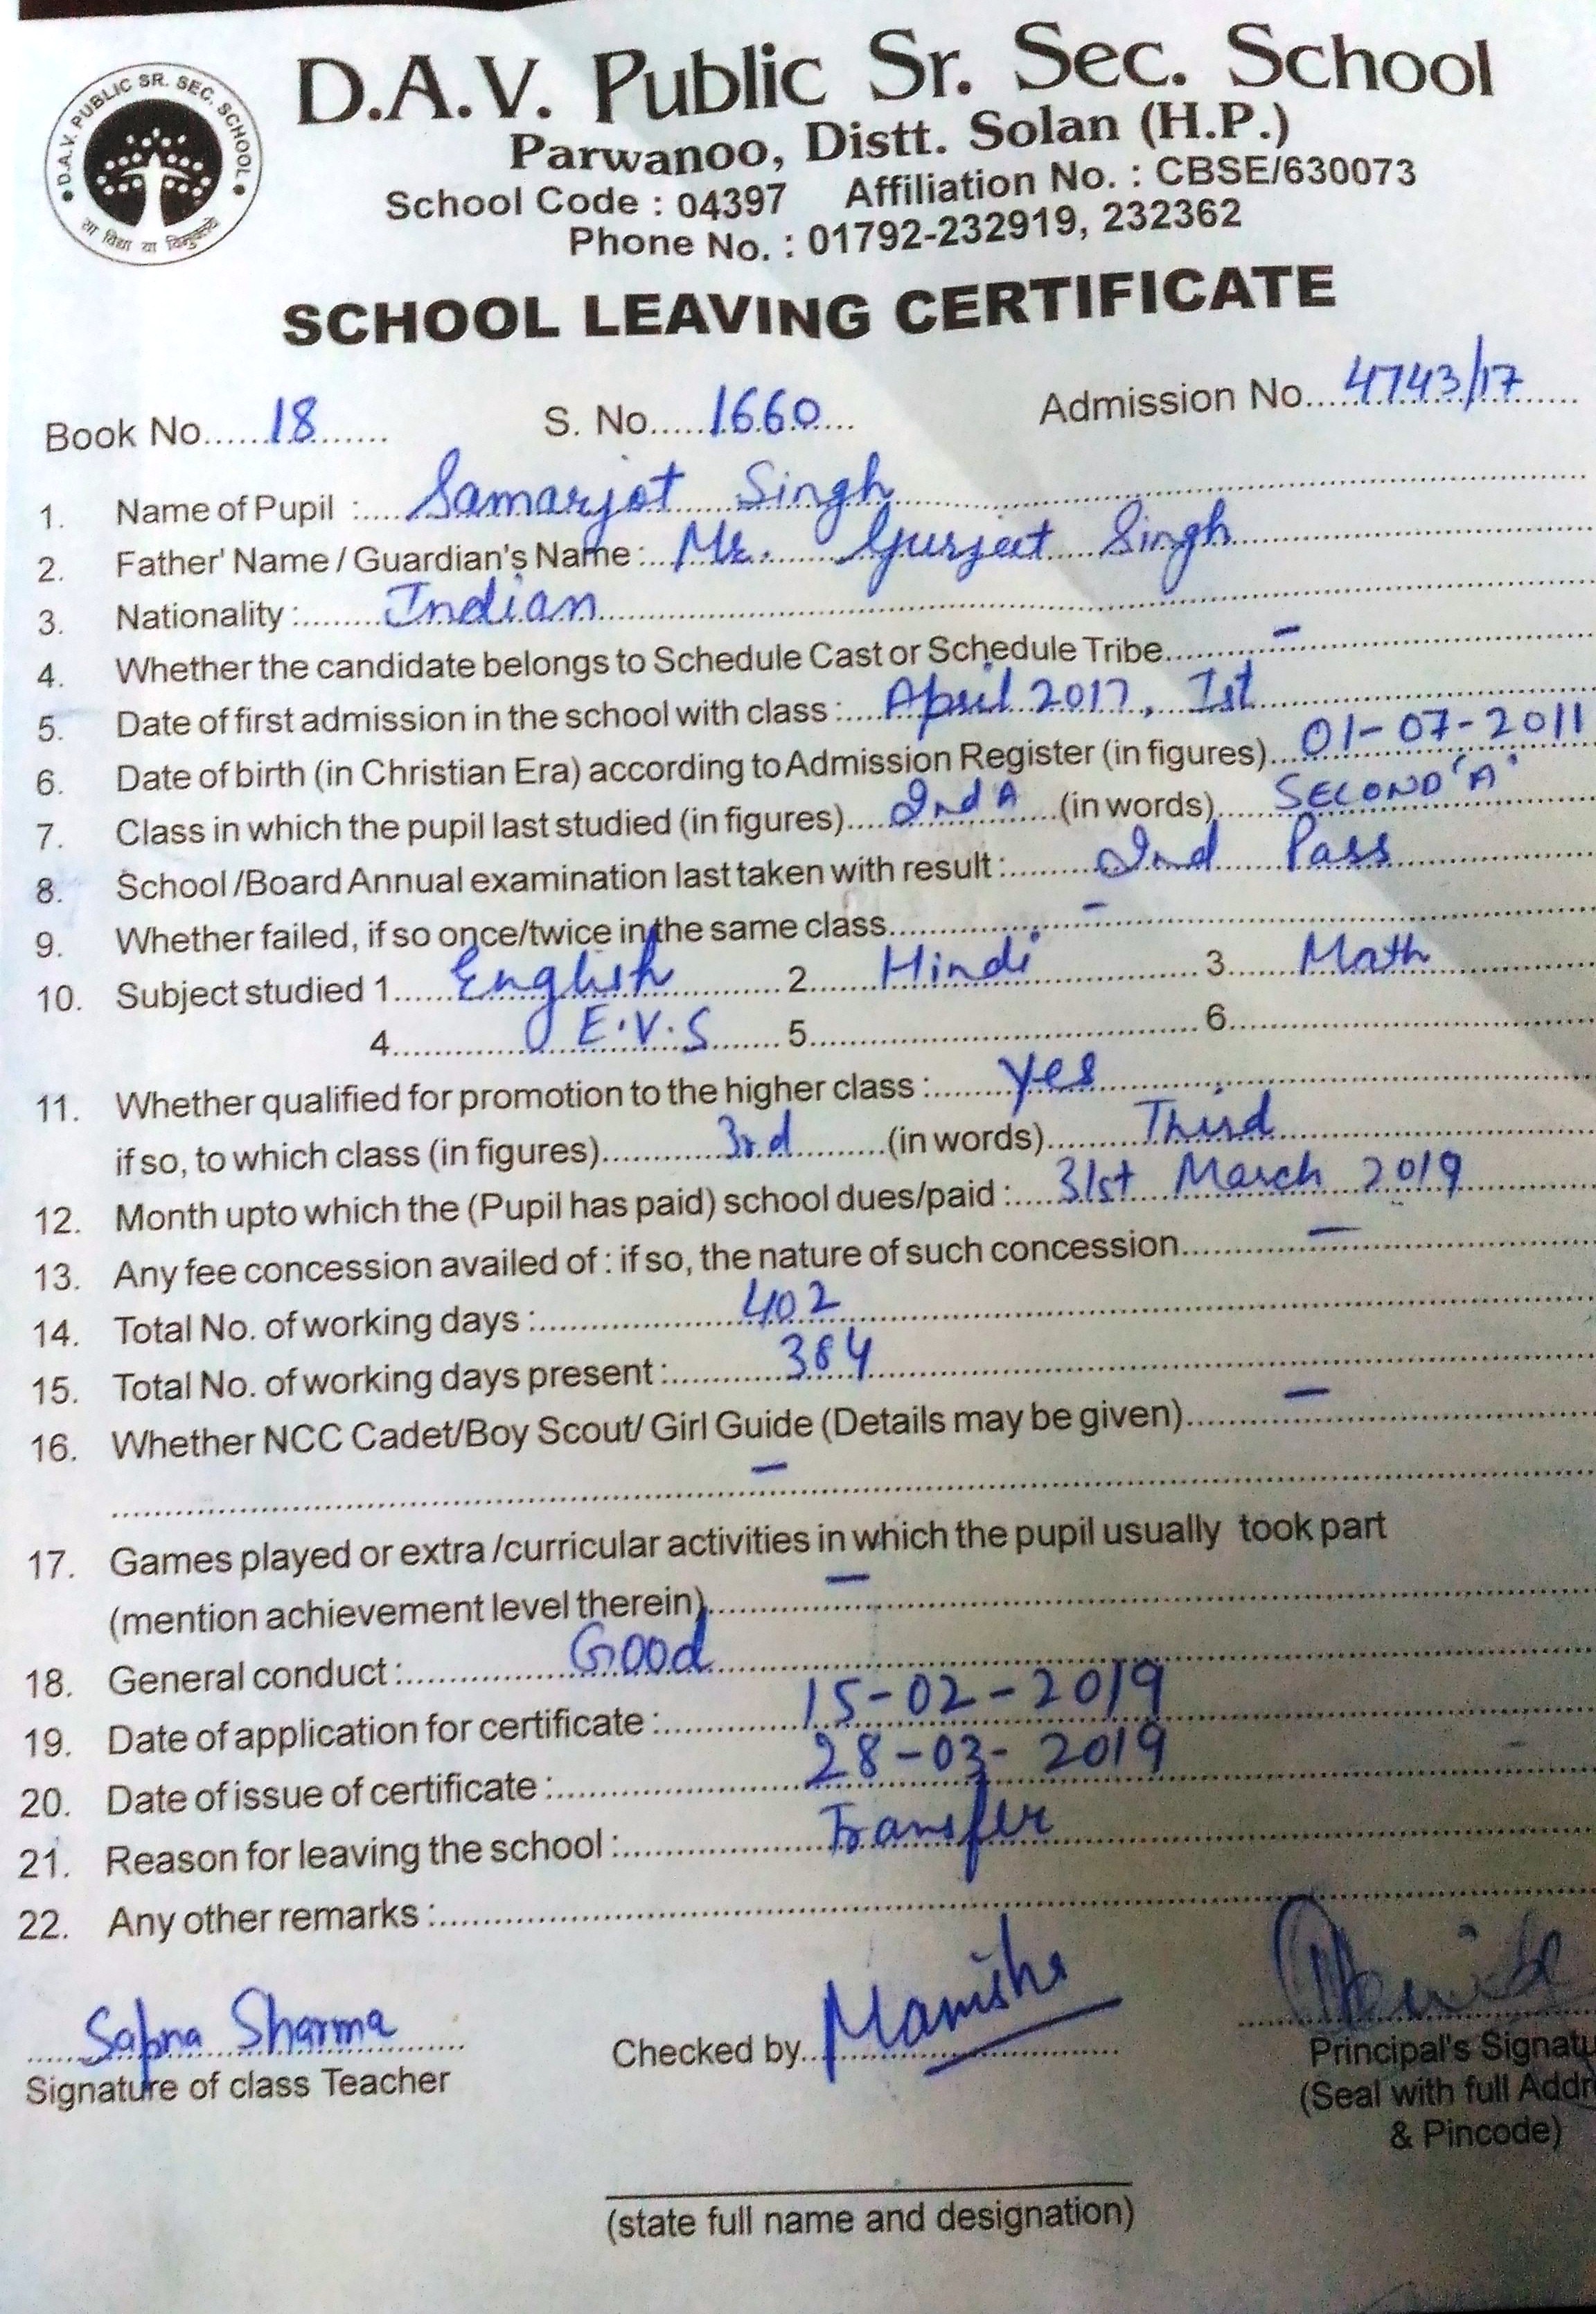 D.A.V. PUBLIC SR. SEC. SCHOOL
सा विद्या या विमुक्तये
D.A.V. Public Sr. Sec. School
Parwanoo, Distt. Solan (H.P.)
School Code : 04397 Affiliation No. : CBSE/630073
Phone No. : 01792-232919, 232362
SCHOOL LEAVING CERTIFICATE
Book No......18....... S. No.....1660... Admission No....4743/17.....
1. Name of Pupil :....Samarjot Singh
2. Father' Name / Guardian's Name :...Mr. Gurjeet Singh
3. Nationality :........Indian
4. Whether the candidate belongs to Schedule Cast or Schedule Tribe........ -
5. Date of first admission in the school with class :....April 2017, Ist
6. Date of birth (in Christian Era) according to Admission Register (in figures)...01-07-2011
7. Class in which the pupil last studied (in figures)....2nd A....(in words)....SECOND 'A'
8. School /Board Annual examination last taken with result :........2nd Pass
9. Whether failed, if so once/twice in the same class........ -
10. Subject studied 1......English.......2.......Hindi.......3......Math
4...........E.V.S.......5...........6...........
11. Whether qualified for promotion to the higher class :......Yes
if so, to which class (in figures)...........3rd........(in words)........Third
12. Month upto which the (Pupil has paid) school dues/paid :....31st March 2019
13. Any fee concession availed of : if so, the nature of such concession........ -
14. Total No. of working days :...........402
15. Total No. of working days present :...........384
16. Whether NCC Cadet/Boy Scout/ Girl Guide (Details may be given)........ -
........ -
17. Games played or extra /curricular activities in which the pupil usually took part
(mention achievement level therein)........ -
18. General conduct :...........Good
19. Date of application for certificate :...........15-02-2019
20. Date of issue of certificate :...........28-03-2019
21. Reason for leaving the school :...........Transfer
22. Any other remarks :...........
Sapna Sharma Manisha
Signature of class Teacher Checked by........ Principal's Signatu
(Seal with full Addr
& Pincode)
(state full name and designation)